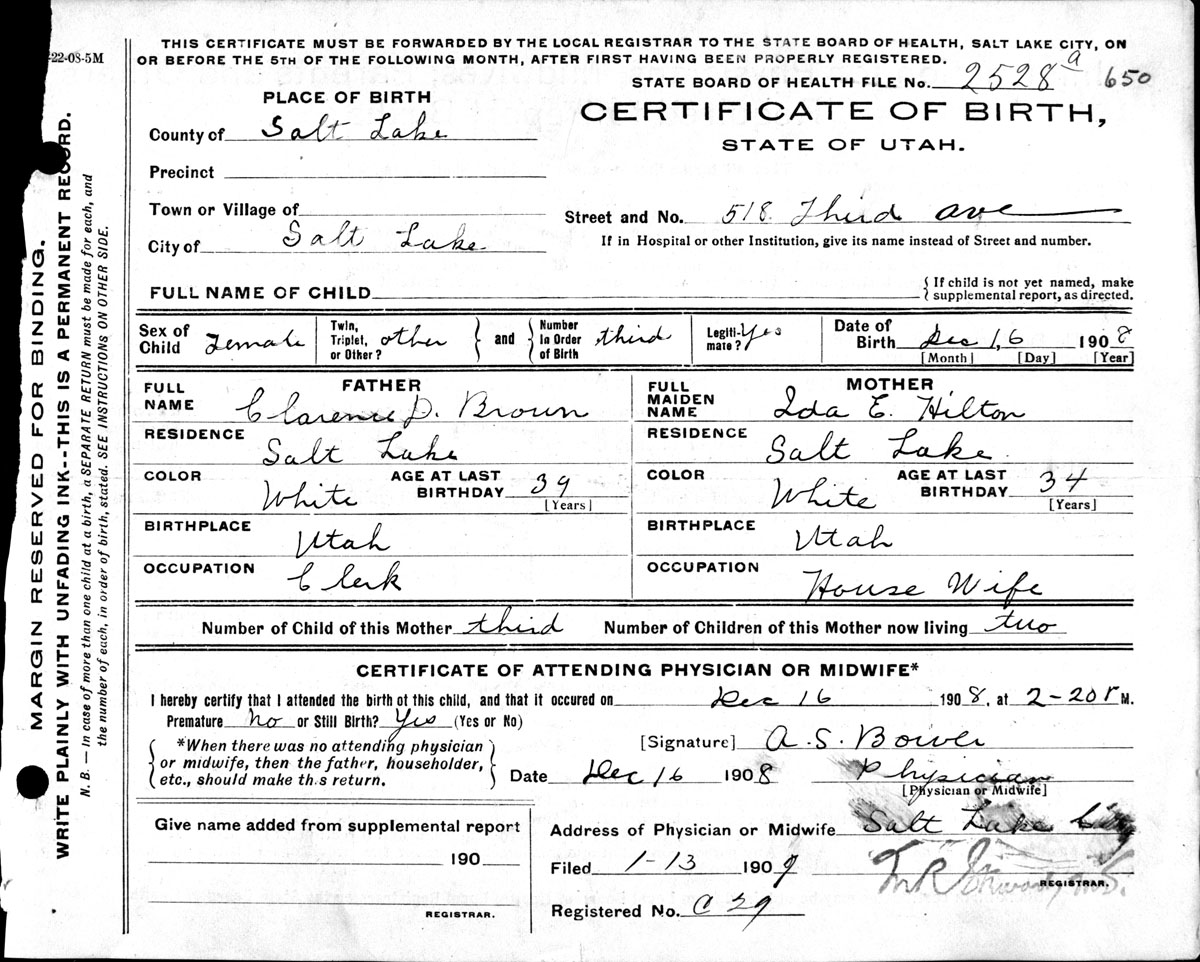 -22-08-5M
THIS CERTIFICATE MUST BE FORWARDED BY THE LOCAL REGISTRAR TO THE STATE BOARD OF HEALTH, SALT LAKE CITY, ON
OR BEFORE THE 5TH OF THE FOLLOWING MONTH, AFTER FIRST HAVING BEEN PROPERLY REGISTERED.
STATE BOARD OF HEALTH FILE No. 2528 a 650
PLACE OF BIRTH
CERTIFICATE OF BIRTH,
STATE OF UTAH.
County of Salt Lake
Precinct
Town or Village of
Street and No. 518 Third Ave
City of Salt Lake
If in Hospital or other Institution, give its name instead of Street and number.
FULL NAME OF CHILD
{ If child is not yet named, make
supplemental report, as directed.
Sex of Child Female
Twin, Triplet, or Other? other } and { Number In Order of Birth third
Legiti-mate? Yes
Date of Birth Dec 16 1908
[Month] [Day] [Year]
FATHER
FULL NAME Clarence D. Brown
RESIDENCE Salt Lake
COLOR White
AGE AT LAST BIRTHDAY 39
[Years]
BIRTHPLACE Utah
OCCUPATION Clerk
MOTHER
FULL MAIDEN NAME Ida E. Hilton
RESIDENCE Salt Lake
COLOR White
AGE AT LAST BIRTHDAY 34
[Years]
BIRTHPLACE Utah
OCCUPATION House Wife
Number of Child of this Mother third Number of Children of this Mother now living two
CERTIFICATE OF ATTENDING PHYSICIAN OR MIDWIFE*
I hereby certify that I attended the birth of this child, and that it occured on Dec 16 1908, at 2-20 P M.
Premature No or Still Birth? Yes (Yes or No)
{ *When there was no attending physician
or midwife, then the father, householder,
etc., should make this return. }
[Signature] A. S. Bower
Date Dec 16 1908 Physician
[Physician or Midwife]
Give name added from supplemental report
190
REGISTRAR.
Address of Physician or Midwife Salt Lake City
Filed 1-13 1909
REGISTRAR.
Registered No. C 29
MARGIN RESERVED FOR BINDING.
WRITE PLAINLY WITH UNFADING INK--THIS IS A PERMANENT RECORD.
N. B. — In case of more than one child at a birth, a SEPARATE RETURN must be made for each, and
the number of each, in order of birth, stated. SEE INSTRUCTIONS ON OTHER SIDE.